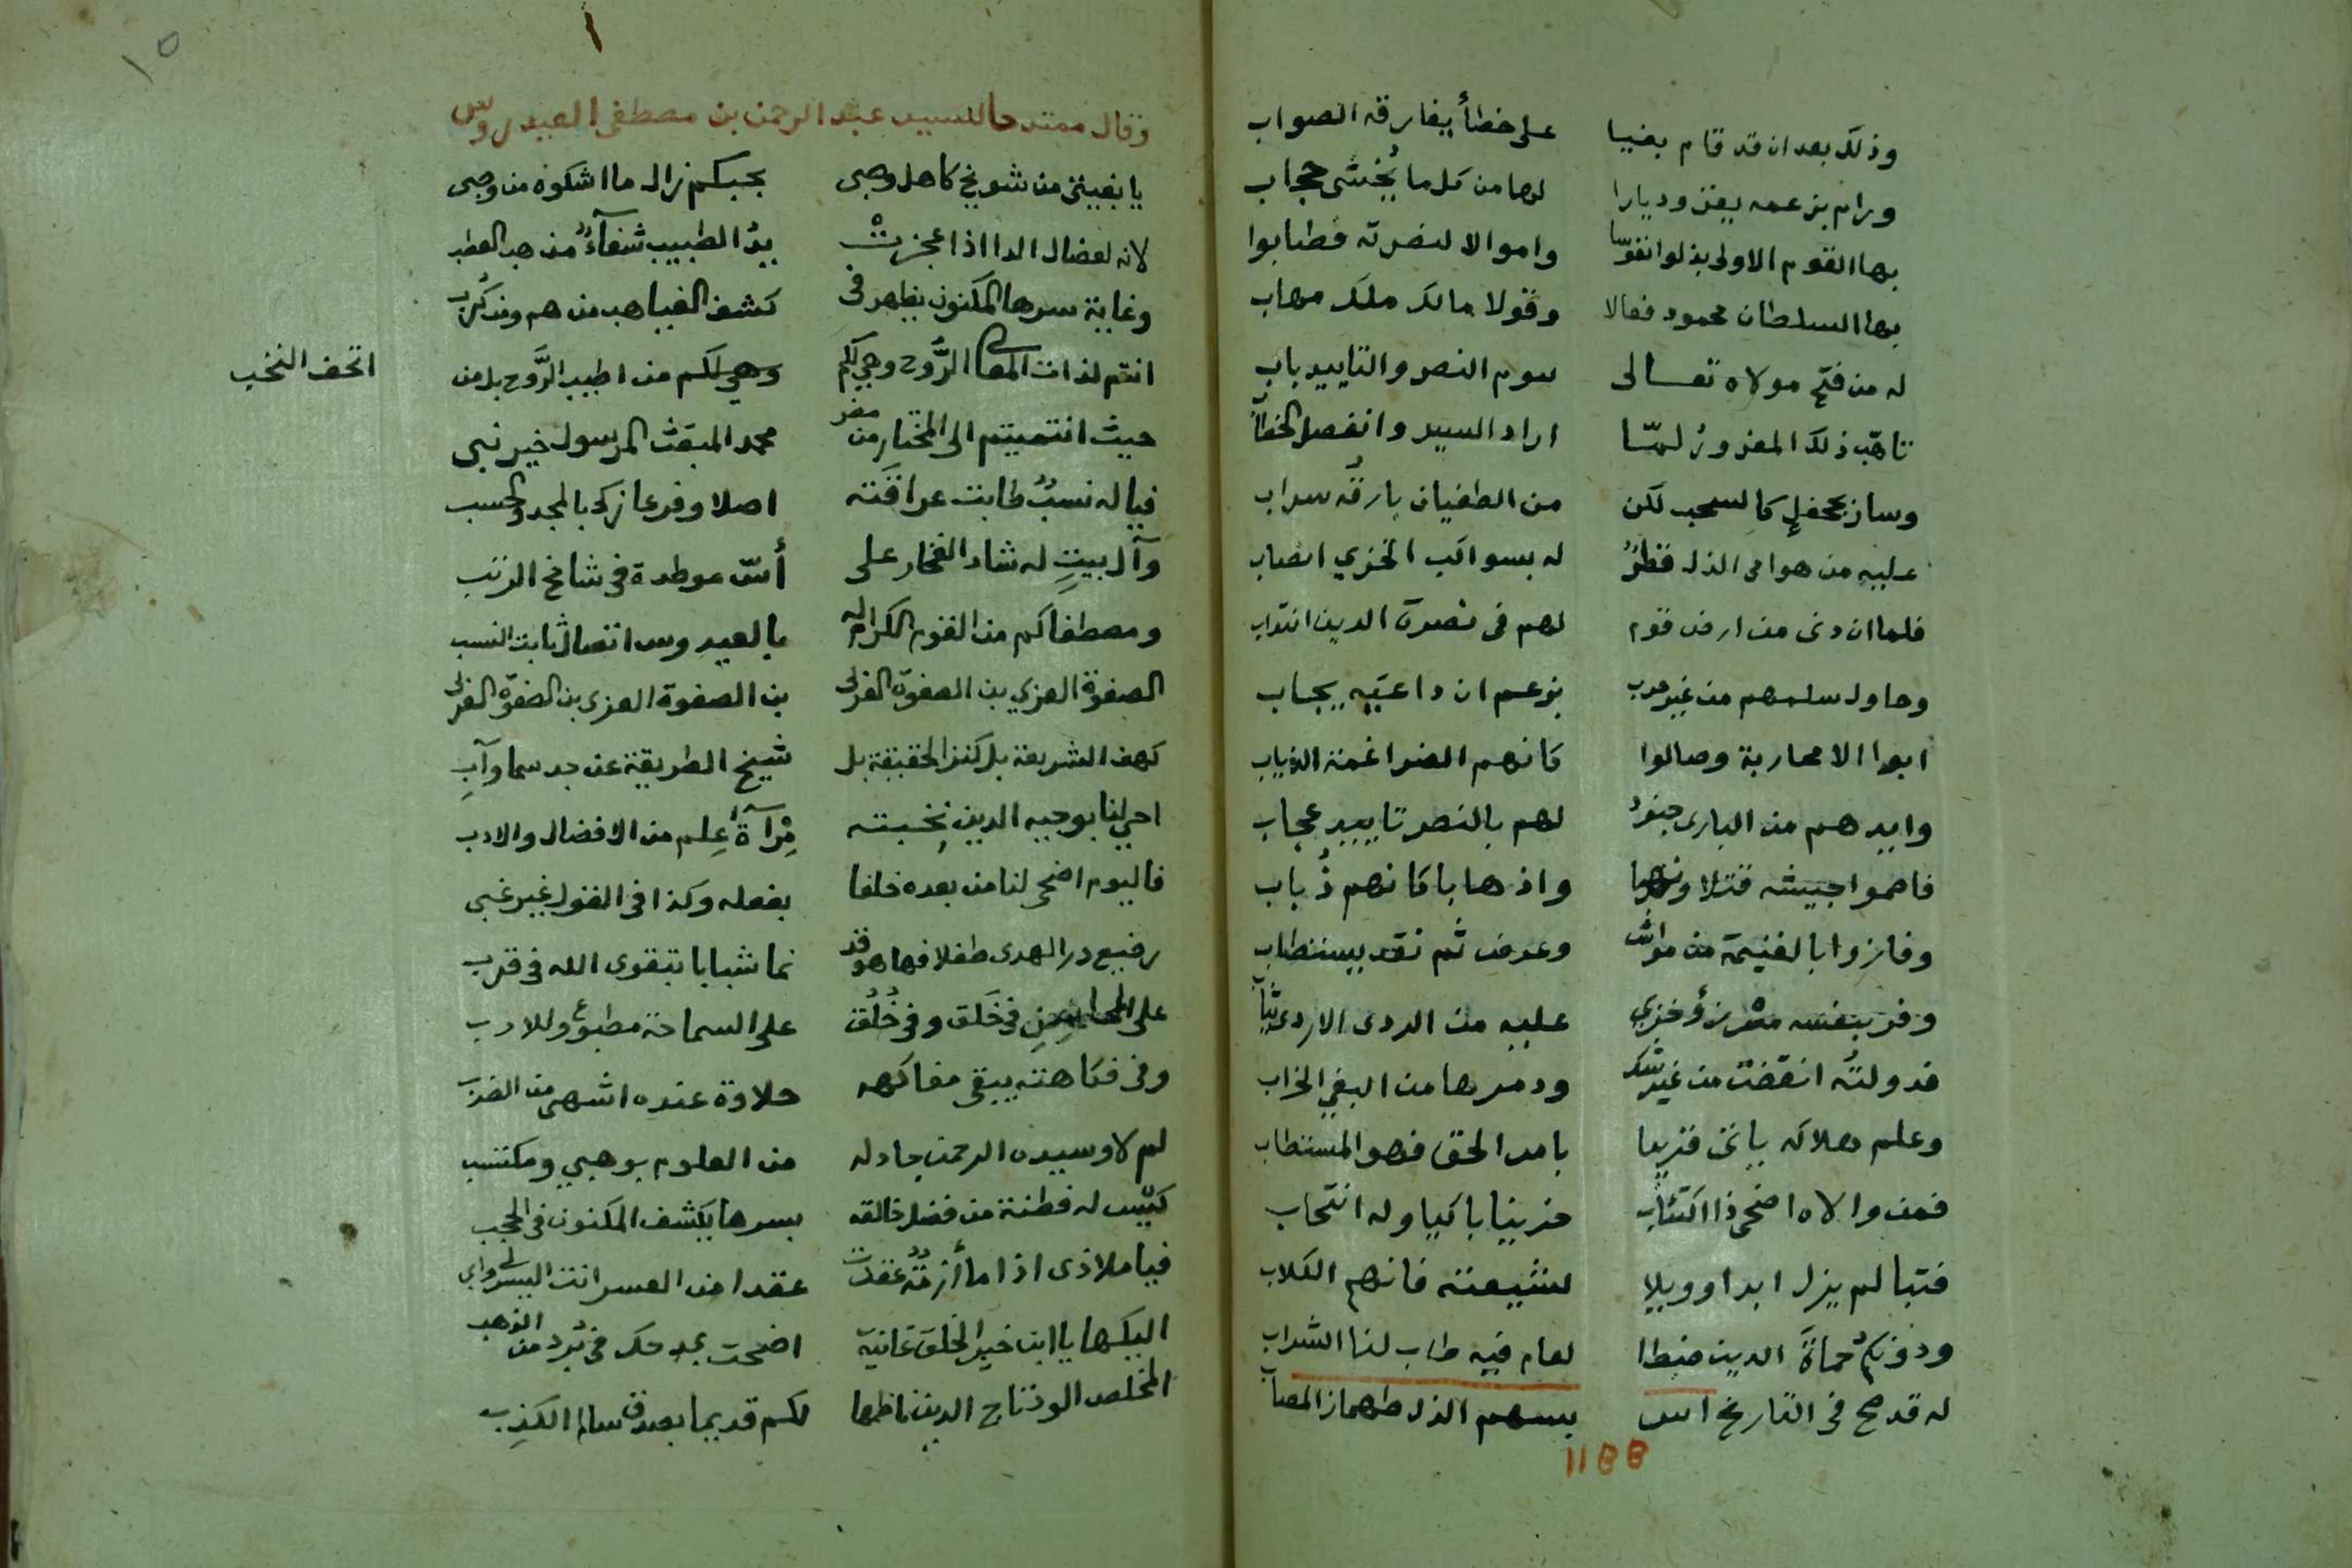 وذلك بعد ان قد قام بغيا على خطأ يفارقه الصواب
ورام بزعمه يغزو ديارا لها من كل ما يُخشى حجاب
بها القوم الاولى بذلوا نفوسا واموالا لنصرته فطابوا
بها السلطان محمود فعالا وقولا مالك ملك مهاب
له من فتح مولاه تعالى سوم النصر والتاييد باب
تاهّب ذلك المغرور لمّا اراد السير وانفصل
وسار بجحفلٍ كالسحب لكن من الطغيان بارقه سراب
عليه من هوامى الذل قطرٌ له بسواكب الخزي انصباب
فلما ان دنى من ارض قوم لهم فى نصرة الدين انتداب
وحاول سلمهم من غير حرب بزعم ان داعيَه يجاب
ابوا الا محاربة وصالوا كانهم الضراغمة الذياب
وايدهم من البارى جنودٌ لهم بالنصر تاييد عجاب
جيشه قتلا ونهبا واذهابا كانهم ذُباب
وفازوا بالغنيمة من مواش وعرض ثم نقد يستطاب
وفر بنفسه وخزي عليه من الردى الاردى ثياب
فدولتُه انقضت من غير شك ودمرها من البغي الخراب
وعلم هلاكه ياتى قريبا بامر الحق فهو المستطاب
فمن والاه اضحى ذا اكتئاب حزينا باكيا وله انتحاب
فتبا لم يزل ابدا وويلا لشيعته فانهم الكلاب
ودونكم حماةَ الدين ضبطا لعام فيه طاب لنا الشراب
له قد صح فى التاريخ بسهم الذل طهماز المصاب
١١٥٥
١٥
وقال ممتدحا للسيد عبد الرحمن بن مصطفى العيدروس
يا بغيتى من كاهل وصبى بحبكم زال ما اشكوه من وصبى
لانه لعضال الدا اذا عجزتْ يدُ الطبيب شفآءٌ من العطب
وغاية سرها المكنون يظهر فى كشف الغياهب من هم ومن كُرب
انتم لذات المعالى الرُّوح وهي لكم وهي لكم من اطيب الرَّوح بل من
اتحف النخب
حيث انتميتم الى المختار من مضر محمد المنتقى المرسول خير نبى
فيا له نسبٌ طابت عراقَته اصلا وفرعا زكى بالمجد والحسب
وآل بيتٍ له شاد الفخار على أسّ موطدة فى شامخ الرتب
ومصطفاكم من القوم الكرام له بالعيدروس اتصال ثابت النسب
الصفوة العزي بن الصفوة العزى بن الصفوة العزى بن الصفوة العزى
كهف الشريعة بل كنز الحقيقة بل شيخ الطريقة عن جد سما وآبِ
بوجيه الدين نخبته مِرْآة عِلم من الافضال والادب
فاليوم اضحى لنا من بعده خلفا بفعله وكذا فى القول غير غبى
رضيع در الهدى طفلا فها هو قد نما شبابا بتقوى الله فى قرب
على المحاسن فى خَلق وفى خُلُق على السماحة مطبوعٌ وللادب
وفى فكاهته يبقى مفاكهه حلاوة عنده اشهى من الضرب
لم لا وسيده الرحمن جاد له من العلوم بوهبي ومكتسب
كيّس له فطنة من فضل خالقه بسرها يكشف المكنون فى الحجب
فيا ملاذى اذا ما أزمةٌ عقدت عقدا من العسر انت اليسر
اليكها يا ابن خير الخلق غانية اضحت بمدحك فى بُرد من الذهب
المخلص الود تاج الدين ناظمها لكم قديما بصدق سالم الكذِب